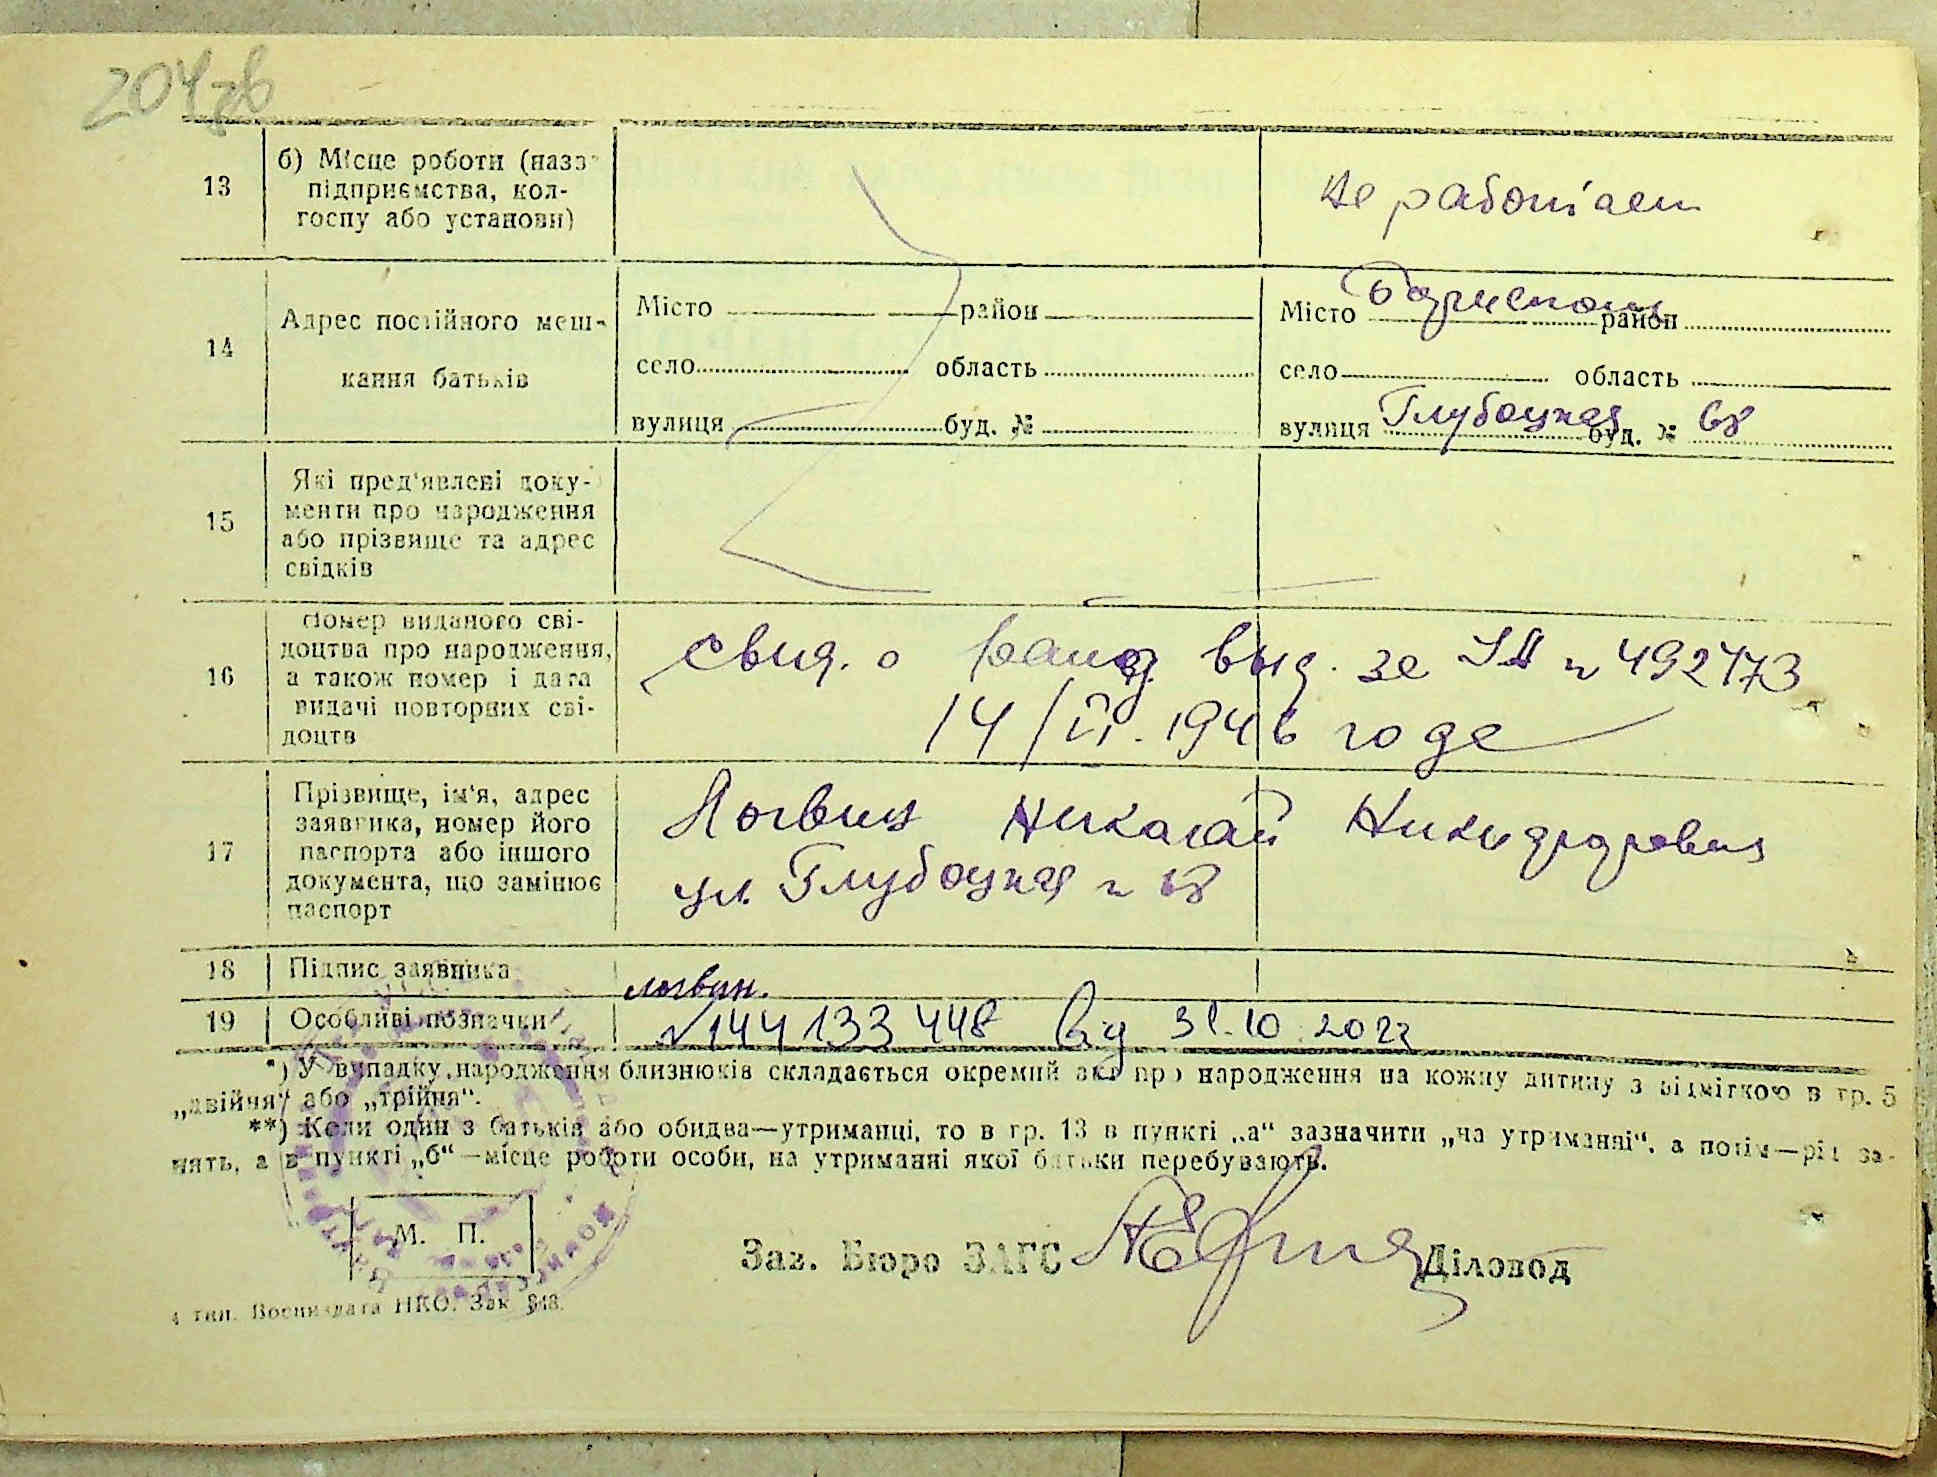 204зв
13
б) Місце роботи (назва
підприємства, кол-
госпу або установи)
не работает
14
Адрес постійного меш-
кання батьків
Місто район
село область
вулиця буд. №
Місто Борисполь район
село область
вулиця Глубоцкая буд. № 68
15
Які пред'явлені доку-
менти про народження
або прізвище та адрес
свідків
16
Номер виданого сві-
доцтва про народження,
а також номер і дата
видачі повторних сві-
доцтв
свид. о рожд. выд. за № 492473
14/VI. 1946 годе
17
Прізвище, ім'я, адрес
заявника, номер його
паспорта або іншого
документа, що замінює
паспорт
Логвин Николай Никифорович
ул. Глубоцкая № 68
18
Підпис заявника
логвин.
19
Особливі позначки
№144133448 від 31.10.2022
*) У випадку народження близнюків складається окремий акт про народження на кожну дитину з відміткою в гр. 5
„двійня“ або „трійня“.
**) Коли один з батьків або обидва—утриманці, то в гр. 13 в пункті „а“ зазначити „на утриманні“, а потім—рід за-
нять, а в пункті „б“—місце роботи особи, на утриманні якої батьки перебувають.
М. П.
Зав. Бюро ЗАГС Діловод
4 тип. Воениздата НКО. Зак. 848.